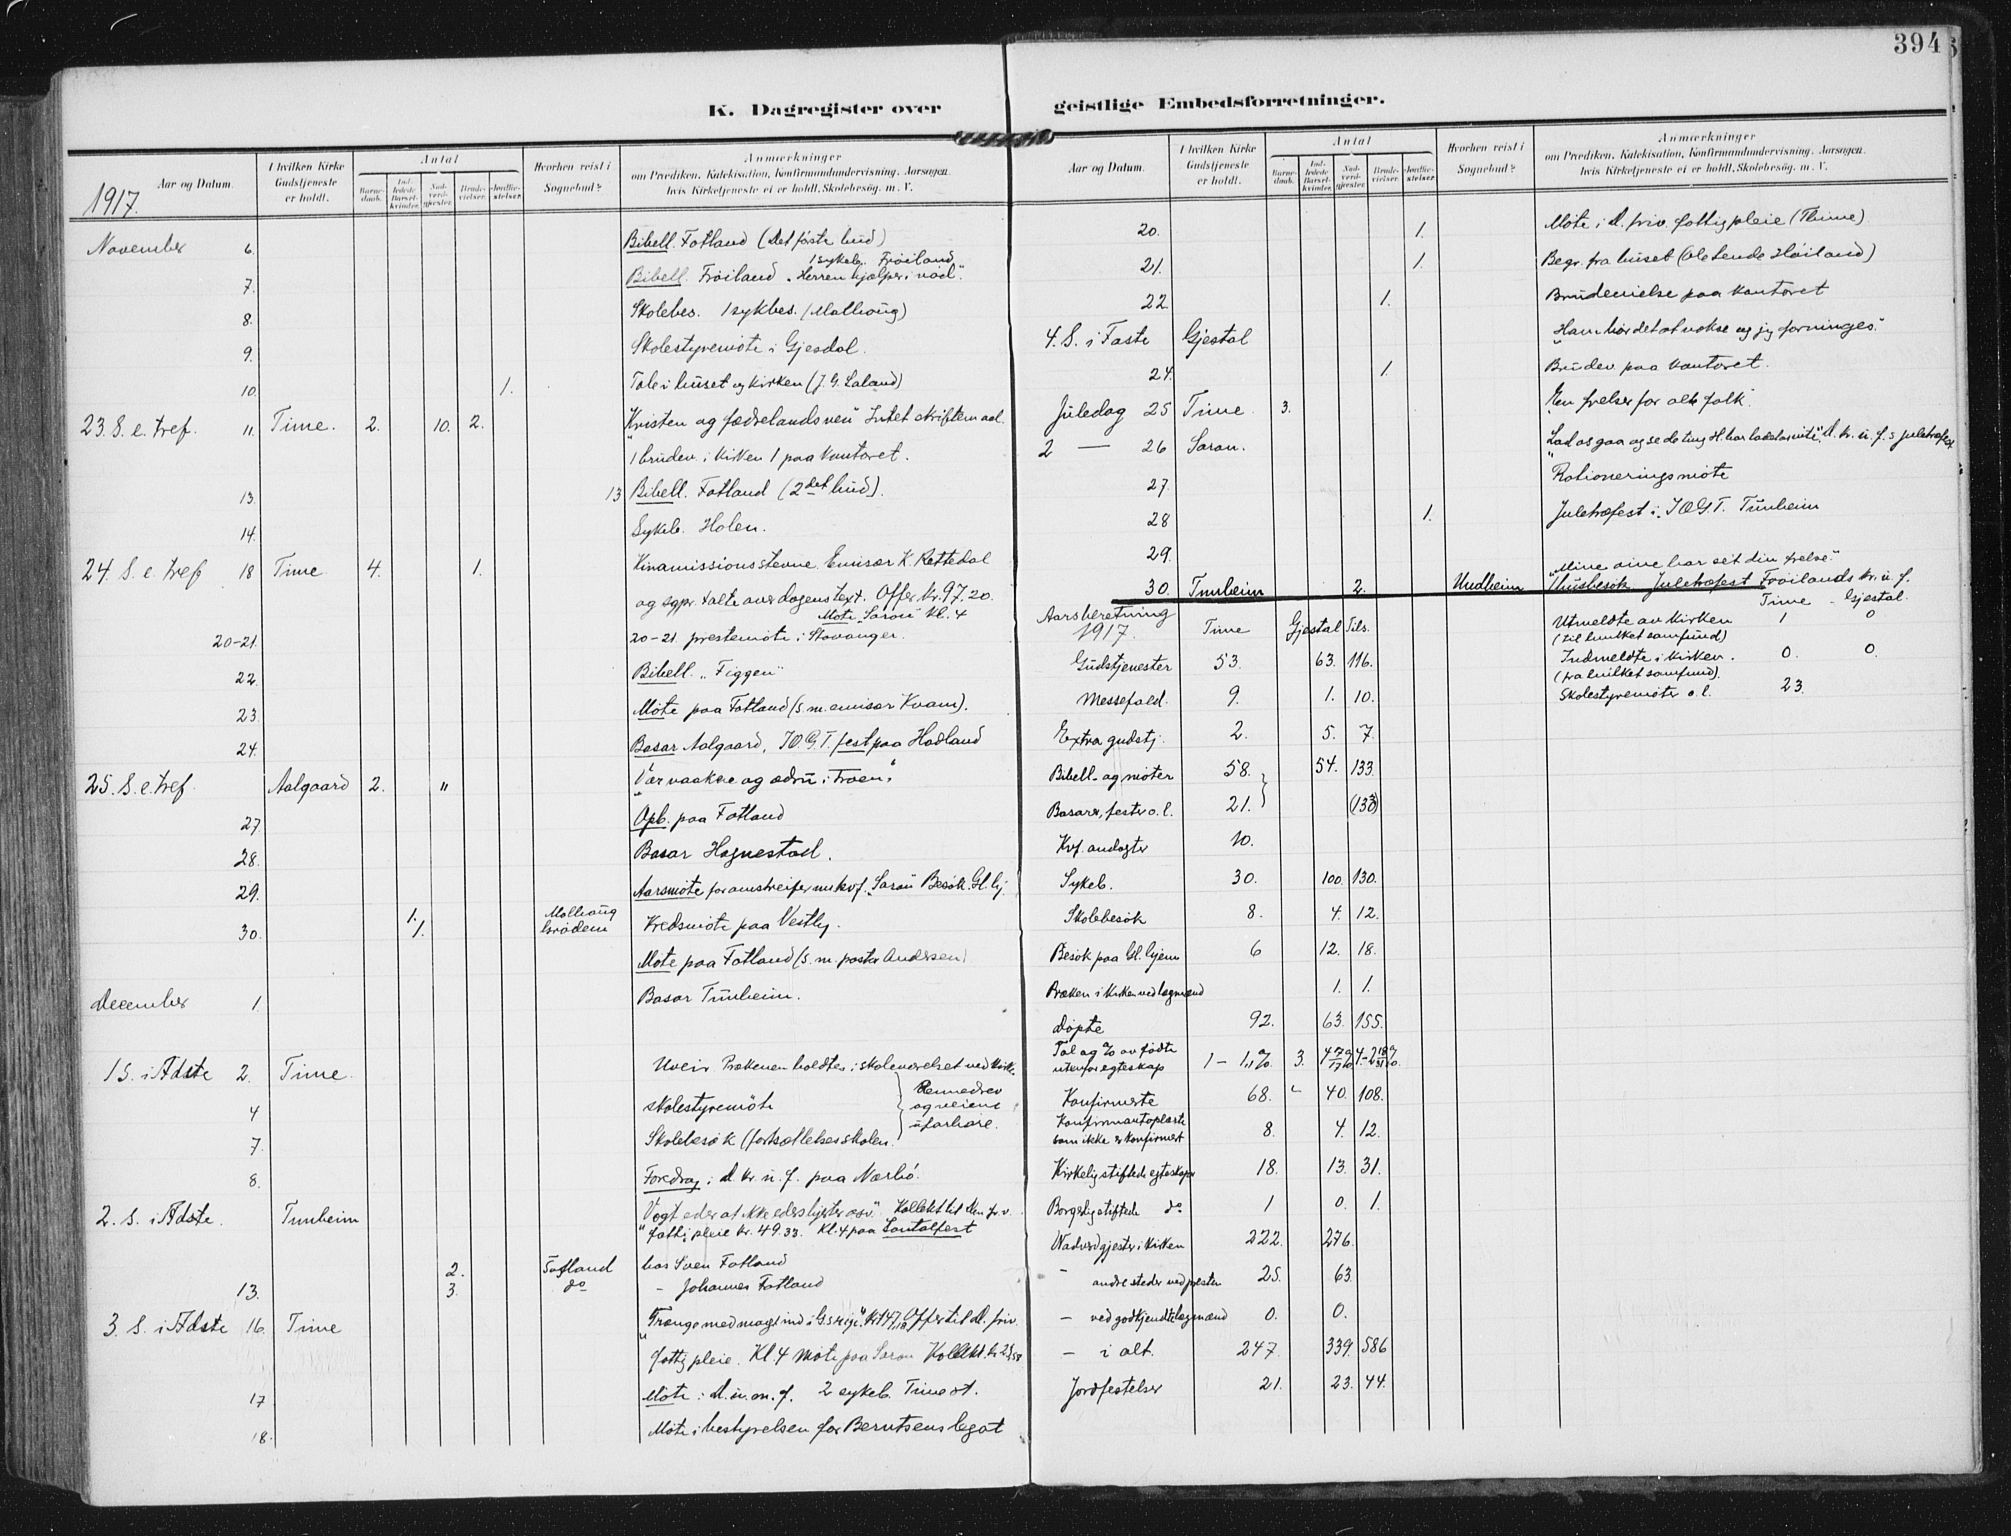 394
K. Dagregister over
geistlige Embedsforretninger.
Aar og Datum.
I hvilken Kirke Gudstjeneste er holdt.
Antal
Barnedaab.
Indledede Barselkvinder.
Nadverdgjester.
Brudevielser.
Jordfæstelser.
Hvorhen reist i Sognebud?
Anmærkninger
om Prædiken, Katekisation, Konfirmandundervisning. Aarsagen
hvis Kirketjeneste ei er holdt. Skolebesøg. m. V.
1917.
November 6. Bibell. Fotland (Det første bud)
1 sykeb. Frøiland
7. Bibell. Frøiland "Herren hjælper i nød".
8. Skolebes. 1 sykbes. (Malhaug)
9. Skolestyremøte i Gjesdal.
10. 1. Tale i huset og kirken (J. G. Laland)
23. S. e. tref. 11. Time. 2. 10. 2. "Kristen og fædrelandsven" Intet skriftemaal.
1 brudev. i kirken 1 paa kontoret.
13. 13 Bibell. Fotland (2det bud).
14. Sykeb. Holen.
24. S. e. tref. 18 Time 4. 1. Kinamissionsstevne. Emisær K. Rettedal
og sgpr. talte over dagens text. Offer kr. 97.20.
Møte "Saron" kl. 4
20-21. 20-21 prestemøte i Stavanger.
22. Bibell. "Figgen"
23. Møte paa Fotland (s. m. emisær Kvam).
24. Basar Aalgaard, I.O.G.T. fest paa Hadland
25. S. e. tref. Aalgaard 2. " "Vær vaakne og ædru i Troen."
27 Opb. paa Fotland
28. Basar Hognestad.
29. Aarsmøte for omstreifermis.kvf. "Saron" Besøk Gl. hj.
30. 1. 1. Malhaug Brøden Kredsmøte paa Vestly.
Møte paa Fotland (s. m. pastor Andersen)
December 1. Basar Tunheim.
1 S. i Adste 2. Time. Uveir. Prækenen holdtes i skoleværelset ved kirk.
4 Skolestyremøte
7. Skolebesøk (fortsættelsesskolen.
Rennedrev og veiene ufarbare.
8. Foredrag i d. kr. u. f. paa Nærbø.
2. S. i Adste. Tunheim "Vogt eder at ikke eders hjerter osv." Kollekt til den pr. v.
fattigpleie kr. 49.33. Kl. 4 paa Santalfest
2. Fotland hos Sven Fotland
13. 3. do - Johannes Fotland
3. S. i Adste 16. Time "Trænge med magt ind i G.s rige". Offer til d. priv.
fattigpleie. Kl. 4 møte paa Saron Kollekt.
17 Møte i d. u. m. f. 2 sykeb. Time st.
18. Møte i bestyrelsen for Berntsens legat
Aar og Datum.
I hvilken Kirke Gudstjeneste er holdt.
Antal
Barnedaab.
Indledede Barselkvinder.
Nadverdgjester.
Brudevielser.
Jordfæstelser.
Hvorhen reist i Sognebud?
Anmærkninger
om Prædiken, Katekisation, Konfirmandundervisning. Aarsagen
hvis Kirketjeneste ei er holdt. Skolebesøg. m. V.
20. 1. Møte i d. priv. fattigpleie (Thime)
21. 1. Begr. fra huset (Ole Høiland)
22 1. Brudevielse paa kontoret
4. S. i Faste Gjestal "Ham bør det at vokse og jeg forringes."
24. 1. Brudev. paa kontoret.
Juledag 25 Time 3. "En frelser for alt folk."
2 — 26 Saron. "Lad os gaa og se de ting H. har ladet os vite". d. kr. u. f.s juletræfest
27. Rationeringsmøte
28 1. Juletræfest i I.O.G.T. Tunheim
29.
"Mine øine har set din frelse."
30. Tunheim 2. Undheim Husbesøk. Juletræfest Frøilands kr. u. f.
Aarsberetning Time. Gjestal.
1917. Time Gjestal Tils. Utmeldte av kirken 1 0
(til hvilket samfund)
Gudstjenester 53. 63. 116. Indmeldte i kirken. 0. 0.
(fra hvilket samfund).
Messefald. 9. 1. 10. Skolestyremøter o. l. 23.
Extra gudstj. 2. 5. 7.
Bibell. og møter 58. 54. 133.
Basarer, fester o. l. 21. (133)
Kvf. andagter 10.
Sykeb. 30. 100. 130.
Skolebesøk 8. 4. 12.
Besøk paa Gl. hjem 6 12. 18.
Præken i kirken ved lægmænd 1. 1.
Døpte 92. 63. 155.
Tal og % av fødte
utenfor egteskap 1 – 1,1%. 3.
Konfirmerte 68. 40. 108.
Konfirmantoplærte
som ikke er konfirmert 8. 4. 12.
Kirkelig stiftede egteskaper 18. 13. 31.
Borgerlig stiftede do 1 0. 1.
Nadverdgjester i kirken 222. 276.
" andre steder ved prester 25. 63.
— ved godkjendte lægmænd 0. 0.
— i alt. 247. 339. 586
Jordfestelser 21. 23. 44.